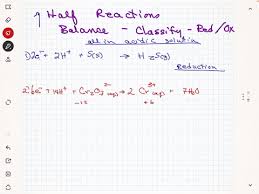 Half Reactions
Balance - Classify - Red/Ox
all in acidic solution
2e⁻ + 2H⁺ + S(s) → H₂S(g)
Reduction
6e⁻ + 14H⁺ + Cr₂O₇²⁻(aq) → 2 Cr³⁺(aq) + 7H₂O
-12 +6